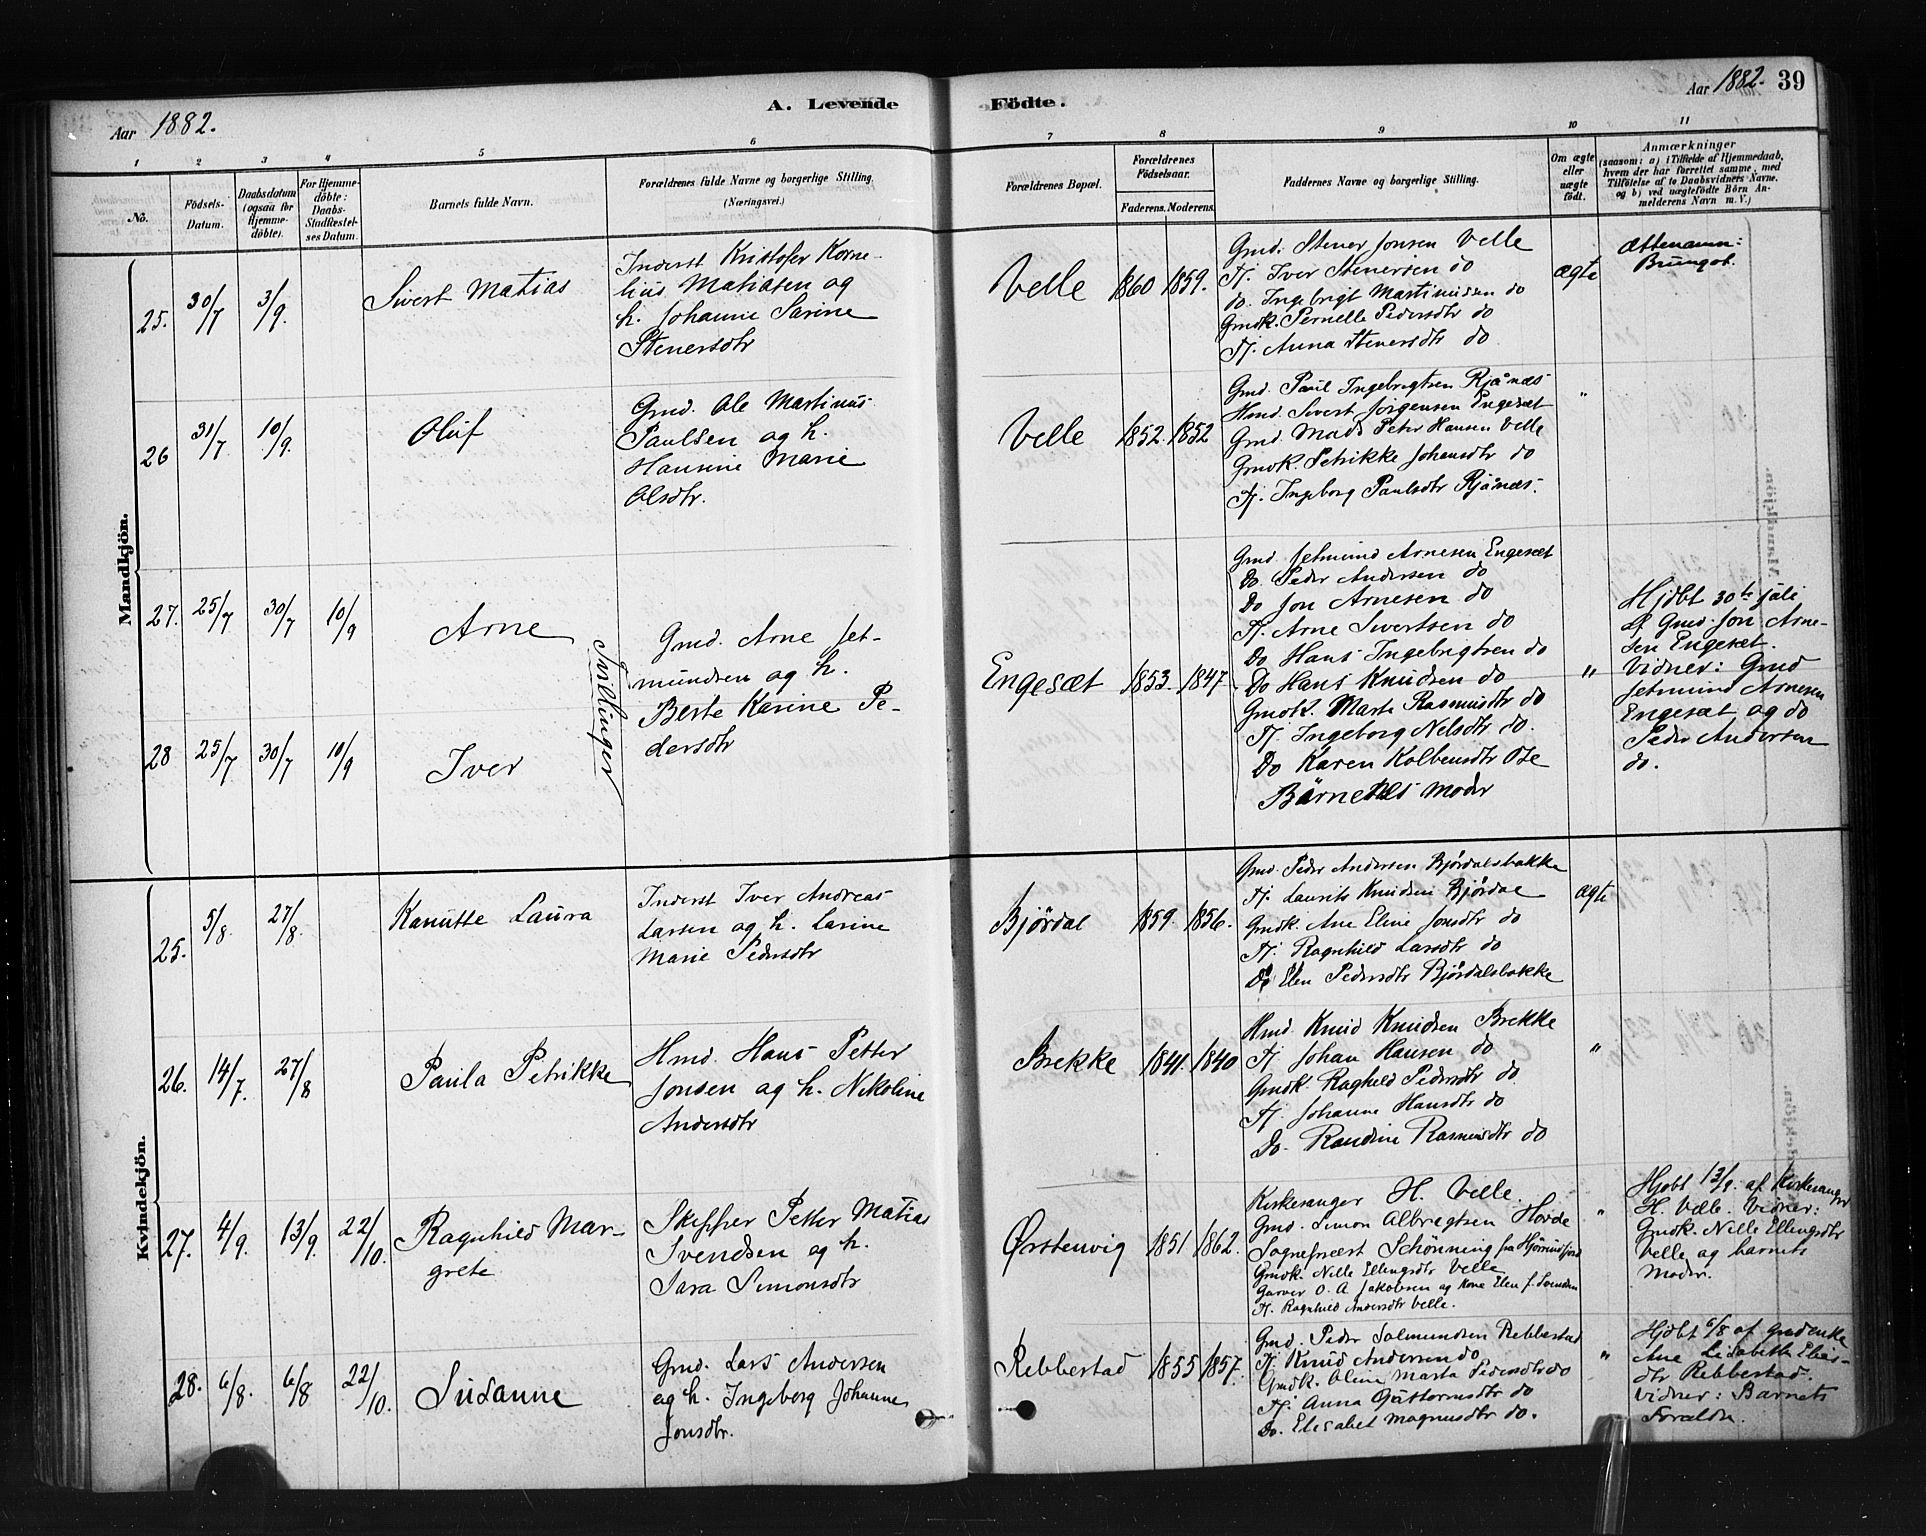 Aar 1882.
A. Levende
Födte.
Aar 1882. 39
1 2 3 4 5 6 7 8 9 10 11
No.
Födsels-
Datum.
Daabsdatum
(ogsaa for
Hjemme-
döbte).
For Hjemme-
döbte:
Daabs-
Stadfæstel-
ses Datum.
Barnets fulde Navn.
Forældrenes fulde Navne og borgerlige Stilling.
(Næringsvei.)
Forældrenes Bopæl.
Forældrenes
Födselsaar.
Faderens. Moderens.
Faddernes Navne og borgerlige Stilling.
Om ægte
eller
uægte
födt.
Anmærkninger
(saasom: a) i Tilfælde af Hjemmedaab,
hvem der har forrettet samme, med
Tilföielse af to Daabsvidners Navne.
og b) ved uægtefödte Börn An-
melderens Navn m. V.)
Mandkjön.
25. 30/7 3/9.
Sivert Matias
Inderst Kristofer Korne-
lius Matiasen og
h. Johanne Sarine
Stenersdtr
Velle 1860 1859.
Gmd. Stener Jonsen Velle
Tj. Iver Stenersen do
do. Ingebrigt Martinusen do
Gmdk. Pernelle Pedersdtr do
Tj. Anna Stenersdtr do
ægte
Ættenamn:
26 31/7 10/9.
Oluf
Gmd. Ole Martinus
Paulsen og h.
Hansine Marie
Olsdtr.
Velle 1852. 1852
Gmd. Paul Ingebrigtsen Rjånæs
Hmd. Sivert Jørgensen Engesæt
Gmd. Mads Peter Hansen Velle
Gmdk. Petrikke Johansdtr do
Tj. Ingeborg Paulsdtr Rjånæs.
"
27. 25/7 30/7 10/9
Arne
Tvillinger
Gmd. Arne Jet-
mundsen og h.
Berte Karine Pe-
dersdtr
Engesæt 1853. 1847
Gmd Jetmund Arnesen Engesæt
Do Peder Andersen do
Do Jon Arnesen do
Tj. Arne Sivertsen do
Do Hans Ingebrigtsen do
Do Hans Knudsen do
Gmdk. Marte Rasmusdtr do
Tj. Ingeborg Nelsdtr do.
Do Karen Kolbensdtr Ose
Börnenes Moder
"
Hjdbt 30te juli
af Gmd. Jon Arne-
sen Engesæt.
Vidner: Gmd
Jetmund Arnesen
Engesæt og do
Peder Andersen
do.
28 25/7 30/7 10/9
Iver
Kvindekjön.
25. 5/8. 27/8.
Kanutte Laura
Inderst Iver Andreas
Larsen og h. Larine
Marie Pedersdtr
Bjørdal 1859. 1856.
Gmd. Peder Andersen Bjørdalsbakke
Tj. Laurits Knudsen Bjørdal
Gmdk. Ane Eline Jonsdtr do
Tj. Ragnhild Larsdtr do
Do Elen Pedersdtr Bjørdalsbakke
ægte
26. 14/7. 27/8
Paula Petrikke
Hmd. Hans Petter
Jonsen og h. Nikoline
Andersdtr
Brekke 1841. 1840
Hmd. Knud Knudsen Brekke
Tj Johan Hansen do
Gmdk. Raghild Pedersdtr do
Tj. Johanne Hansdtr do
Do. Randine Rasmusdtr do
"
27. 4/9. 13/9. 22/10.
Ragnhild Mar-
grete
Skipper Petter Matias
Svendsen og h.
Sara Simonsdtr
Ørstenvig 1851 1862.
Kirkesanger H. Velle.
Gmd. Simon Albregtsen Hovde
Sogneprest Schönning fra Hjørundfjord
Gmdk. Nille Ellingsdtr Velle
Garver O. A Jakobsen og Kone Elen f. Svendsen
Tj. Ragnhild Andersdtr Velle.
"
Hjdbt 13/9. af Kirkesanger
H. Velle. Vidner:
Gmdk. Nille Ellingsdtr
Velle og barnets
Moder.
28. 6/8. 6/8 22/10.
Susanne
Gmd. Lars Andersen
og h. Ingeborg Johanne
Jonsdtr.
Rebbestad 1855 1857.
Gmd. Peder Salmundsen Rebbestad
Tj. Knud Andersen do
Gmdk. Oline Marta Pedersdtr do
Tj. Anna Guttormsdtr do
Do. Elisabet Magnusdtr do.
"
Hjdbt 6/8 af Gmdenke
Ane Lisabeth Elias-
dtr Rebbestad.
Vidner: Barnets
Forældre.